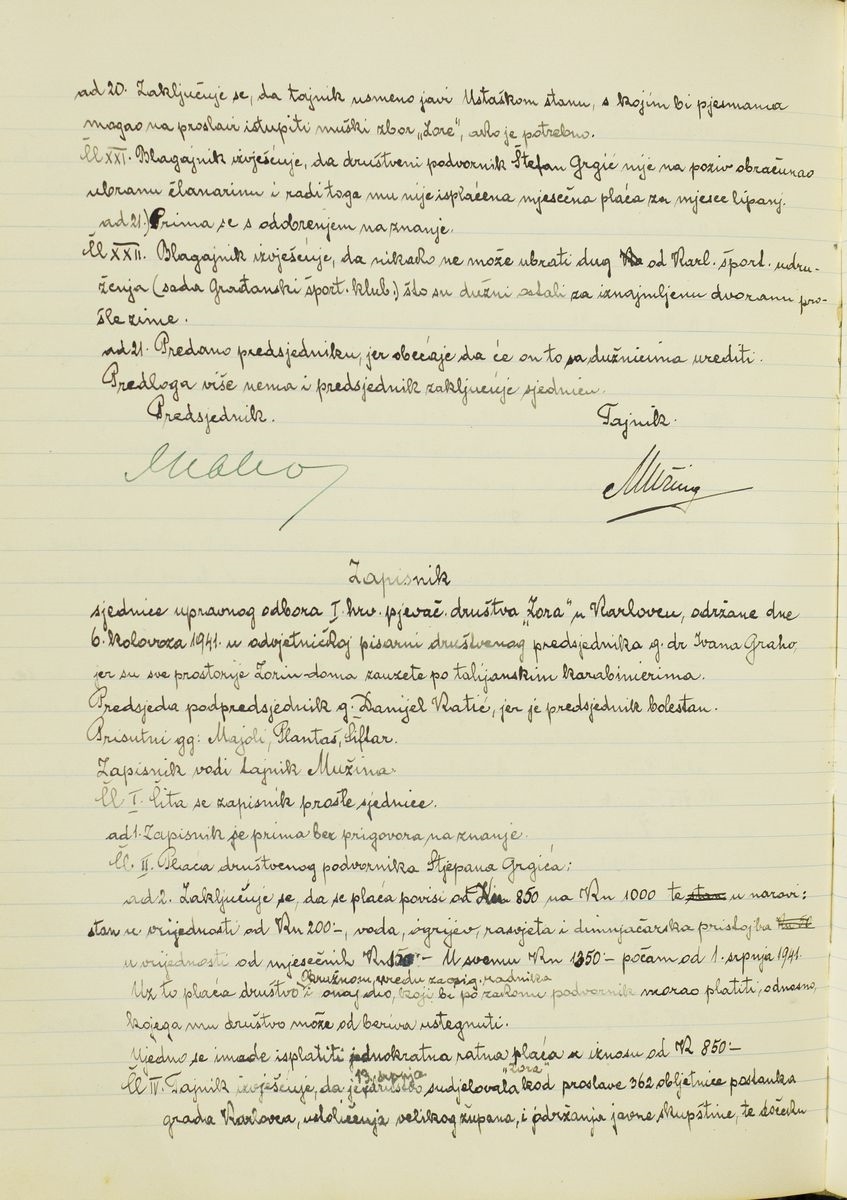 ad 20. Zaključuje se, da tajnik usmeno javi Ustaškom stanu, s kojim bi pjesmama
mogao na proslavi istupiti muški zbor „Zore", ako je potrebno.
Čl XXI. Blagajnik izvješćuje, da društveni podvornik Štefan Grgić nije na poziv obračunao
ubranu članarinu i radi toga mu nije isplaćena mjesečna plaća za mjesec lipanj.
ad 21.) Prima se s odobrenjem na znanje.
Čl XXII. Blagajnik izvješćuje, da nikako ne može ubrati dug od Karl. šport. udru-
ženja (sada Građanski šport. klub.) što su dužni ostali za iznajmljenu dvoranu pro-
šle zime.
ad 21. Predano predsjedniku, jer obećaje da će on to sa dužnicima urediti.
Predloga više nema i predsjednik zaključuje sjednicu.
Predsjednik. Tajnik.
Zapisnik
sjednice upravnog odbora I. hrv. pjevač. društva „Zora" u Karlovcu, održane dne
6. kolovoza 1941. u odvjetničkoj pisarni društvenog predsjednika g. dr Ivana Graho,
jer su sve prostorije Zorin-doma zauzete po talijanskim karabinierima.
Predsjeda podpredsjednik g. Danijel Katić, jer je predsjednik bolestan.
Prisutni gg: Majoli, Plantaš, Šiftar.
Zapisnik vodi tajnik Mužina.
Čl I. Čita se zapisnik prošle sjednice.
ad 1. Zapisnik se prima bez prigovora na znanje.
Čl. II. Plaća društvenog podvornika Stjepana Grgića:
ad 2. Zaključuje se, da se plaća povisi od Kn 850 na Kn 1000 te stan u naravi:
stan u vrijednosti od Kn 200:-, voda, ogrijev, rasvjeta i dimnjačarska pristojba
u vrijednosti od mjesečnih Kn 150:- U svemu Kn 1350:- počam od 1. srpnja 1941.
Okružnom uredu za osig. radnika
Uz to plaća društvo i onaj dio, koji bi po zakonu podvornik morao platiti, odnosno,
kojega mu društvo može od beriva ustegnuti.
Ujedno se imade isplatiti jednokratna ratna plaća u iznosu od K 850:-
13. srpnja „Zora"
Čl IV. Tajnik izvješćuje, da je sudjelovala kod proslave 362 obljetnice postanka
grada Karlovca, ustoličenja velikog župana, i održanja javne skupštine, te dočeku